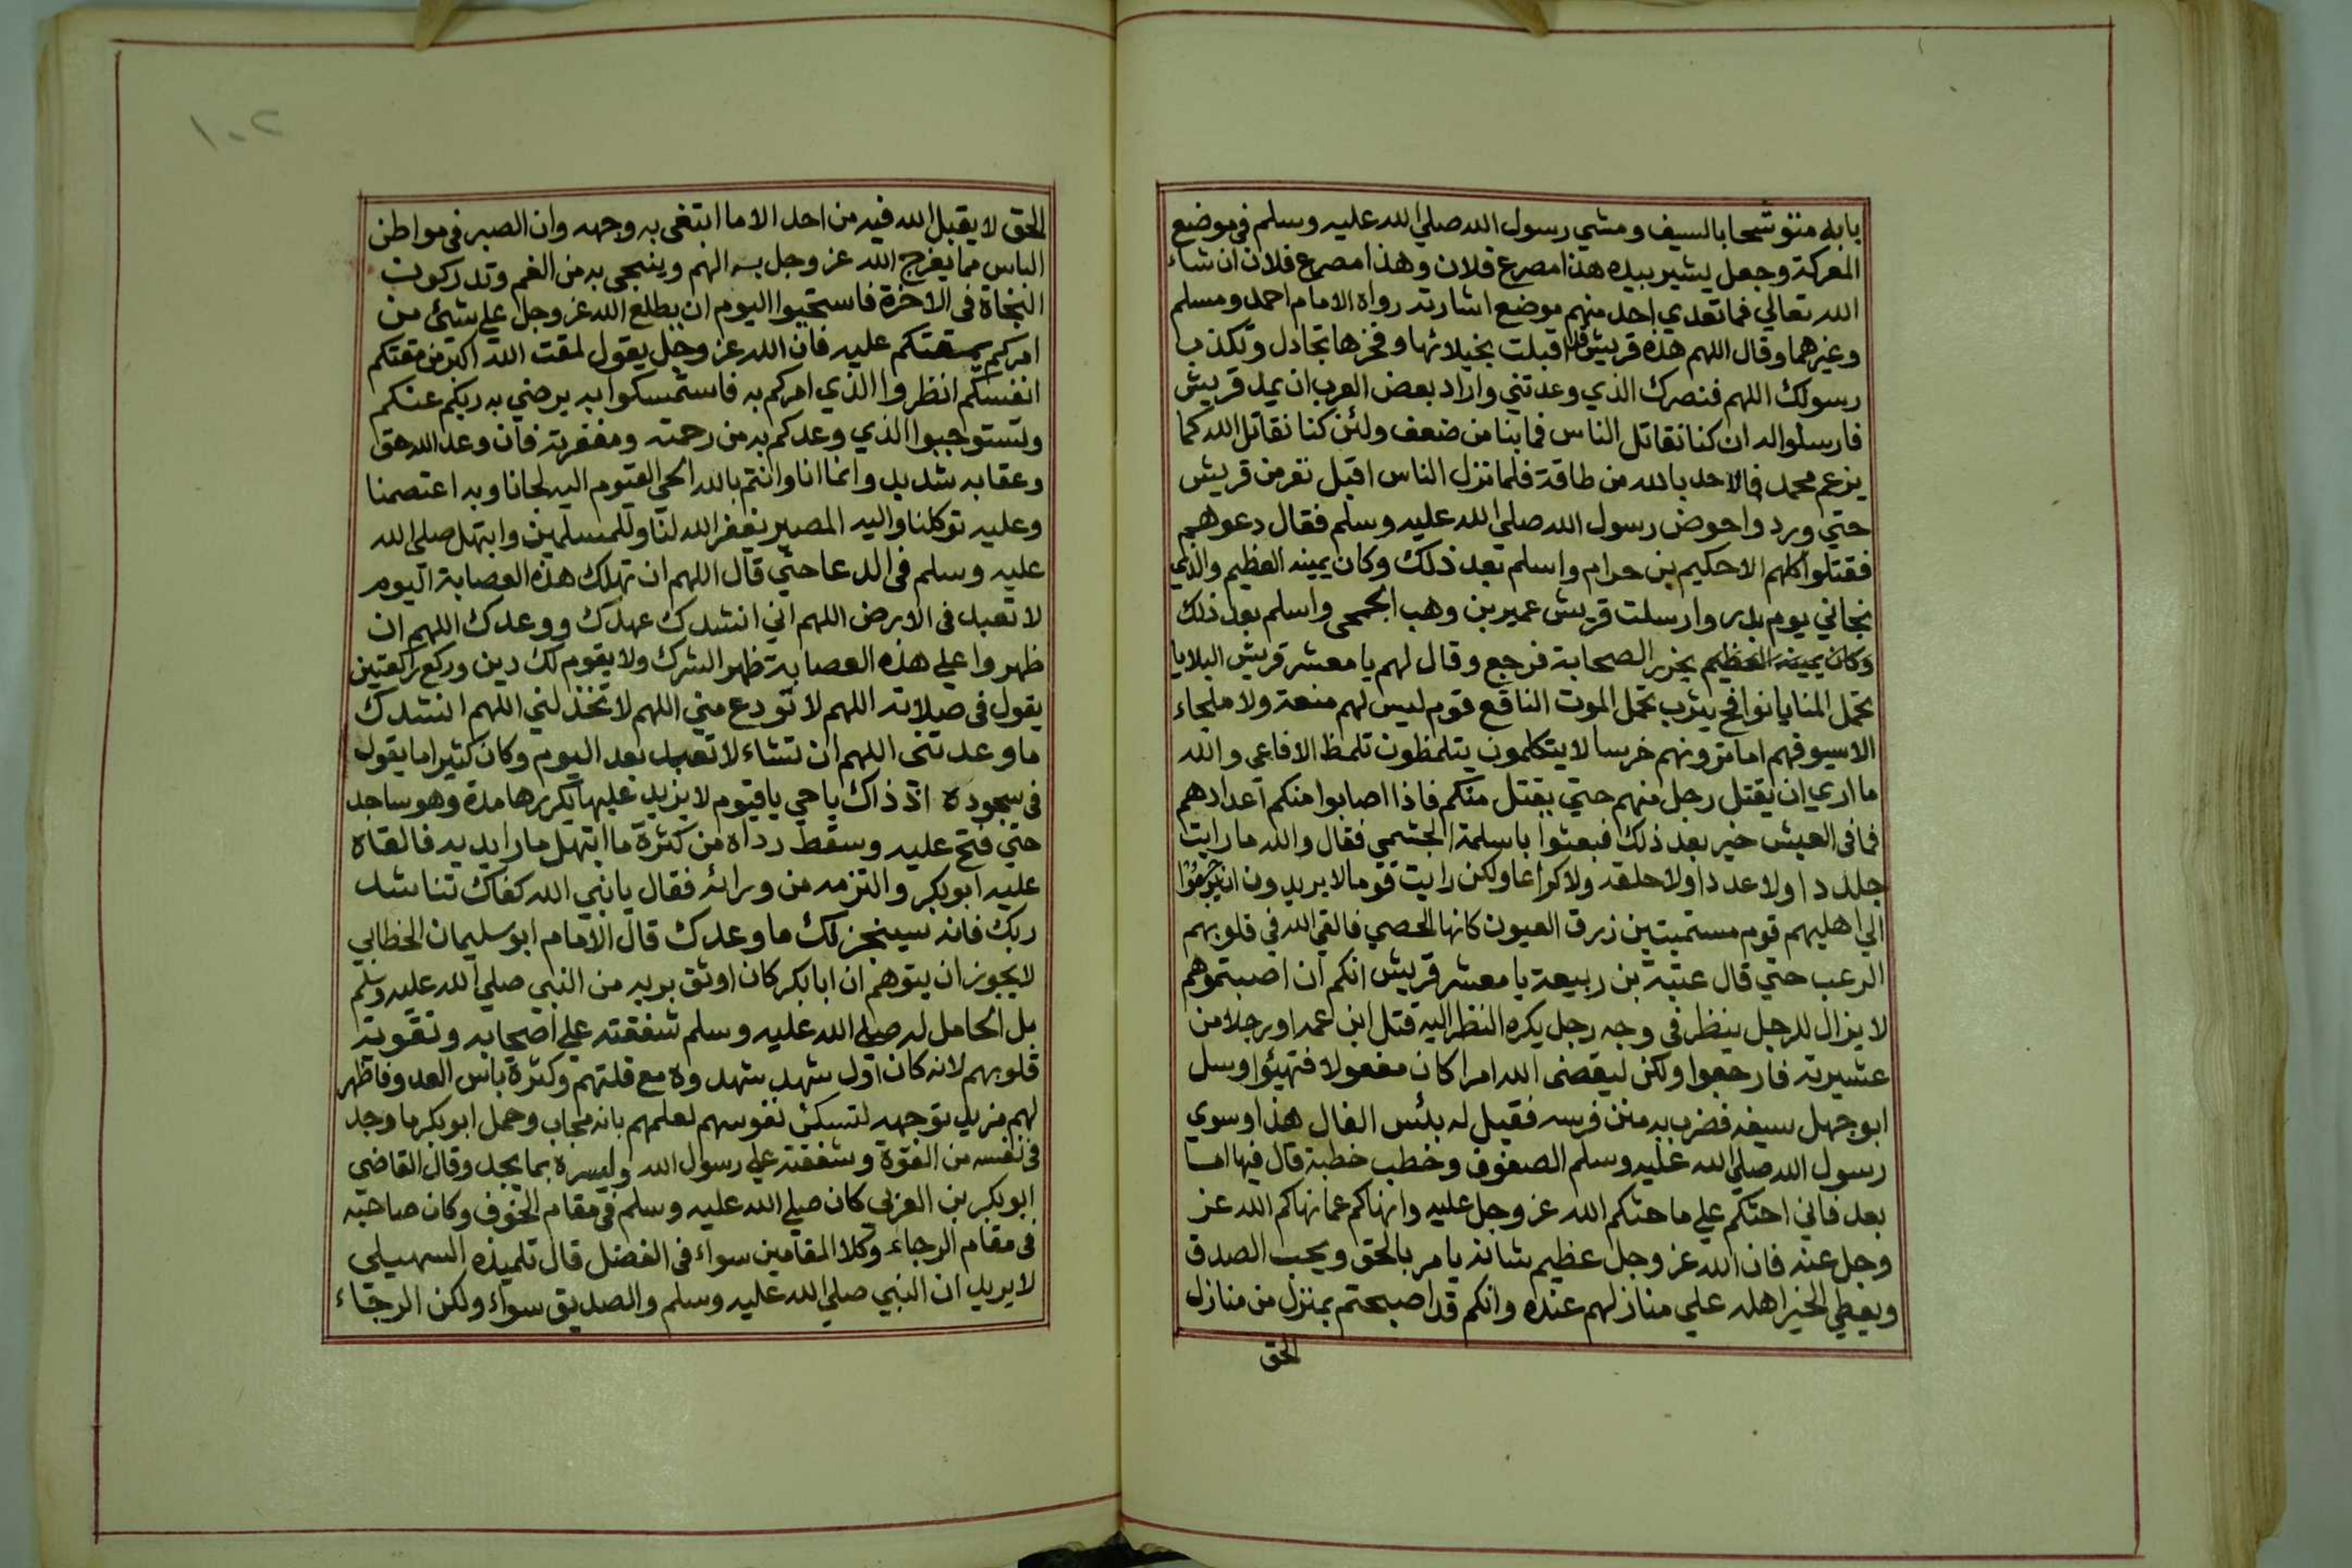 بابه متوشحا بالسيف ومشي رسول الله صلي الله عليه وسلم في موضع
المعركة وجعل يشير بيده هذا مصرع فلان وهذا مصرع فلان ان شاء
الله تعالي فما تعدي احد منهم موضع اشارته رواه الامام احمد ومسلم
وغيرهما وقال اللهم هذه قريش قد اقبلت بخيلائها وفخرها تجادل وتكذب
رسولك اللهم فنصرك الذي وعدتني واراد بعض العرب ان يمد قريش
فارسلوا له ان كنا نقاتل الناس فما بنا من ضعف ولئن كنا نقاتل الله كما
يزعم محمد فما لاحد بالله من طاقة فلما نزل الناس اقبل نفر من قريش
حتي وردوا حوض رسول الله صلي الله عليه وسلم فقال دعوهم
فقتلوا كلهم الا حكيم بن حزام واسلم بعد ذلك وكان يمينه العظيم والذي
نجاني يوم بدر وارسلت قريش عمير بن وهب الجمحي واسلم بعد ذلك
وكان يمينه العظيم يحزر الصحابة فرجع وقال لهم يا معشر قريش البلايا
تحمل المنايا نواضح يثرب تحمل الموت الناقع قوم ليس لهم منعة ولا ملجاء
الا سيوفهم اما ترونهم خرسا لا يتكلمون يتلمظون تلمظ الافاعي والله
ما اري ان يقتل رجل منهم حتي يقتل منكم فاذا اصابوا منكم اعدادهم
فما في العيش خير بعد ذلك فبعثوا باسلمة الجشمي فقال والله ما رايت
جلدا ولا عددا ولا حلقه ولا كراعا ولكن رايت قوما لا يريدون ان يرجعوا
الي اهليهم قوم مستميتين زرق العيون كانها الحصي فالقي الله في قلوبهم
الرعب حتي قال عتبة بن ربيعة يا معشر قريش انكم ان اصبتموهم
لا يزال للرجل ينظر في وجه رجل يكره النظر اليه قتل ابن عمه او رجلا من
عشيرته فارجعوا ولكن ليقضي الله امرا كان مفعولا فتهيئوا وسل
ابو جهل سيفه فضرب به متن فرسه فقيل له بئس الفال هذا وسوي
رسول الله صلي الله عليه وسلم الصفوف وخطب خطبة قال فيها اما
بعد فاني احثكم علي ما حثكم الله عز وجل عليه وانهاكم عما نهاكم الله عز
وجل عنه فان الله عز وجل عظيم شانه يامر بالحق ويحب الصدق
ويعطي الخير اهله علي منازلهم عنده وانكم قد اصبحتم بمنزل من منازل
الحق
١٠٢
الحق لا يقبل الله فيه من احد الا ما ابتغي به وجهه وان الصبر في مواطن
الباس مما يفرج الله عز وجل به الهم وينجي به من الغم وتدركون
النجاة في الاخرة فاستحيوا اليوم ان يطلع الله عز وجل علي شئ من
امركم يمقتكم عليه فان الله عز وجل يقول لمقت الله اكبر من مقتكم
انفسكم انظروا الذي امركم به فاستمسكوا به يرضي به ربكم عنكم
وتستوجبوا الذي وعدكم به من رحمته ومغفرته فان وعد الله حق
وعقابه شديد وانما انا وانتم بالله الحي القيوم اليه لجانا وبه اعتصمنا
وعليه توكلنا واليه المصير نغفر الله لنا وللمسلمين وابتهل صلي الله
عليه وسلم في الدعا حتي قال اللهم ان تهلك هذه العصابة اليوم
لا تعبد في الارض اللهم اني انشدك عهدك ووعدك اللهم ان
ظهروا علي هذه العصابة ظهر الشرك ولا يقوم لك دين وركع ركعتين
يقول في صلاته اللهم لا تودع مني اللهم لا تخذلني اللهم انشدك
ما وعدتني اللهم ان تشاء لا تعبد بعد اليوم وكان كثيرا ما يقول
في سجوده اذ ذاك يا حي يا قيوم لا يزيد عليها يكررها مدة وهو ساجد
حتي فتح عليه وسقط رداه من كثرة ما ابتهل مارا يديه فالقاه
عليه ابو بكر والتزمه من ورائه فقال يا نبي الله كفاك تناشد
ربك فانه سينجز لك ما وعدك قال الامام ابو سليمان الخطابي
لا يجوز ان يتوهم ان ابا بكر كان اوثق بربه من النبي صلي الله عليه وسلم
بل الحامل له صلي الله عليه وسلم شفقته علي اصحابه وتقوية
قلوبهم لانه كان اول شهد شهدوه مع قلتهم وكثرة باس العدو فاظهر
لهم مزيد توجهه لتسكن نفوسهم لعلمهم بانه مجاب وحمل ابو بكر ما وجد
في نفسه من القوة وشفقته علي رسول الله وليسره بما يجد وقال القاضي
ابو بكر بن العربي كان صلي الله عليه وسلم في مقام الخوف وكان صاحبه
في مقام الرجاء وكلا المقامين سواء في الفضل قال تلميذه السهيلي
لا يريد ان النبي صلي الله عليه وسلم والصديق سواء ولكن الرجاء